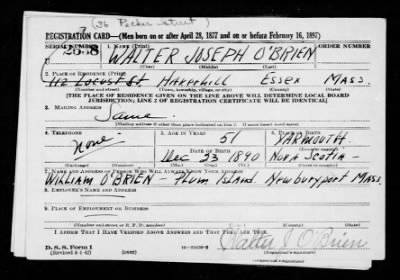 (36 Pecker Street)
REGISTRATION CARD—(Men born on or after April 28, 1877 and on or before February 16, 1897)
SERIAL NUMBER 1. NAME (Print)
WALTER JOSEPH O'BRIEN
(First) (Middle) (Last)
2. PLACE OF RESIDENCE (Print)
112 Locust St. Haverhill Essex MASS.
(Number and street) (Town, township, village, or city) (County) (State)
[THE PLACE OF RESIDENCE GIVEN ON THE LINE ABOVE WILL DETERMINE LOCAL BOARD
JURISDICTION; LINE 2 OF REGISTRATION CERTIFICATE WILL BE IDENTICAL]
3. MAILING ADDRESS
Same
4. TELEPHONE 5. AGE IN YEARS 6. PLACE OF BIRTH
none 51 YARMOUTH
DATE OF BIRTH
Dec 23 1890 NOVA SCOTIA
7. NAME AND ADDRESS OF PERSON WHO WILL ALWAYS KNOW YOUR ADDRESS
WILLIAM O'BRIEN — Plum Island Newburyport MASS.
8. EMPLOYER'S NAME AND ADDRESS
9. PLACE OF EMPLOYMENT OR BUSINESS
(Number and street or R. F. D. number) (Town) (County) (State)
I AFFIRM THAT I HAVE VERIFIED ABOVE ANSWERS AND THAT THEY ARE TRUE.
D. S. S. Form 1
(Revised 4-1-42) (over) Walter J O'Brien